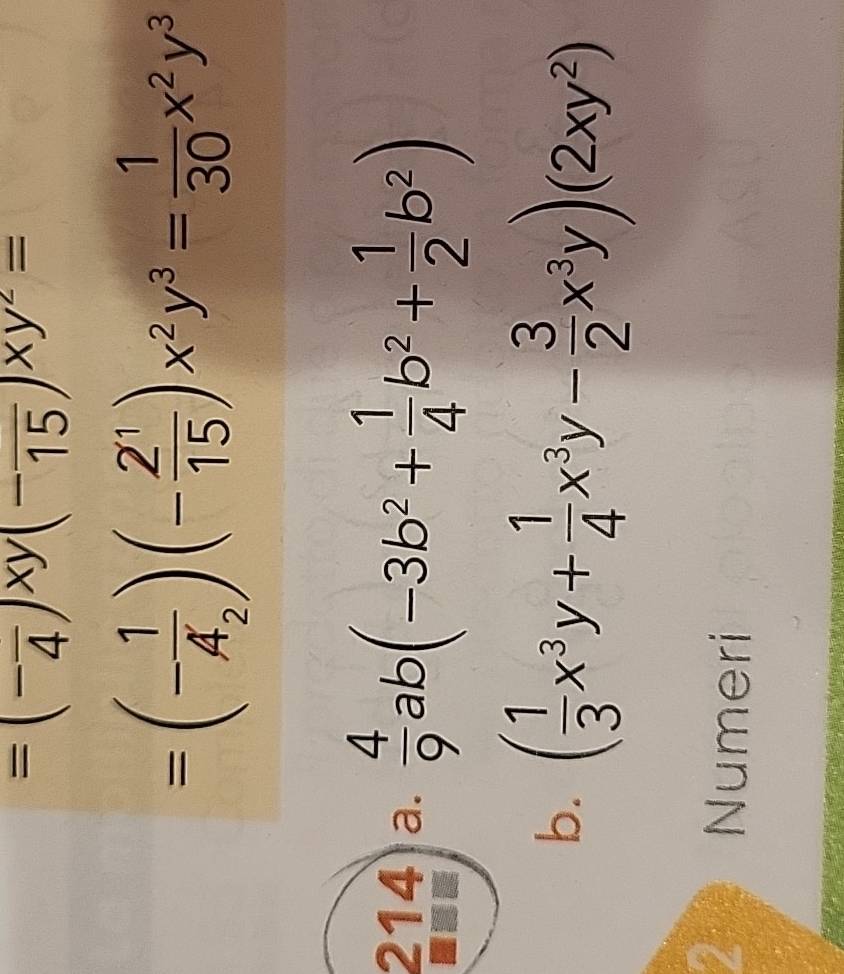 = (-—/4)xy(-—/15)xy² =
= (-1/4₂)(-2¹/15)x²y³ = 1/30 x²y³
214 a. 4/9 ab(-3b² + 1/4 b² + 1/2 b²)
b. (1/3 x³y + 1/4 x³y - 3/2 x³y)(2xy²)
2 Numeri